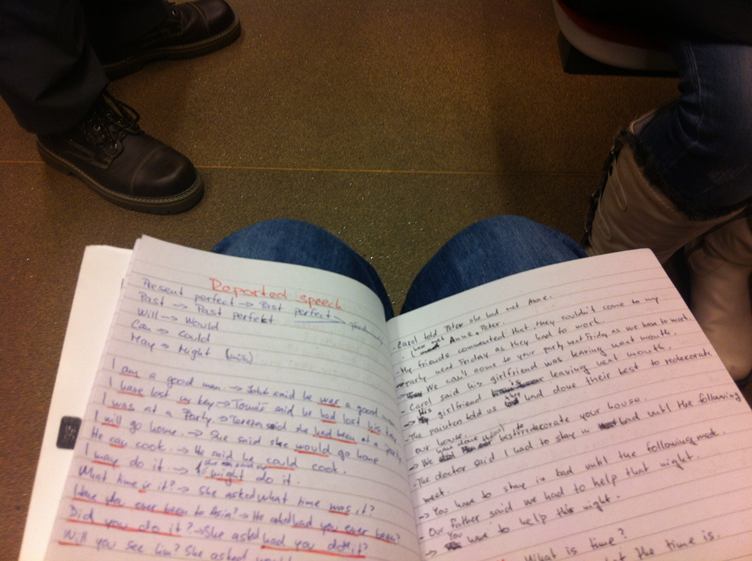 Reported speech
Present perfect → Past perfect →
Past → Past perfekt
Will → Would
Can → Could
May → Might
I am a good man. → John said he was a good man
I have lost my key → Tomás said he had lost his key
I was at a Party. → Teresa said she had been at a party
I will go home. → She said she would go home
He can cook. → He said he could cook.
I may do it. → might do it.
What time is it? → She asked what time was it?
Have you ever been to Asia? → He asked had you ever been?
Did you do it? → She asked had you done it?
Will you see him? She asked would
Carol told Peter she had met Anne.
I met Anne, Peter.
My friends commented that they couldn't come to my
party next Friday as they had to work.
→ We can't come to your party next Friday as we have to work
- Carol said his girlfriend was leaving next month.
→ My girlfriend is leaving next month.
- The painter told us had done their best to redecorate
our house.
→ We best redecorate your house.
- The doctor said I had to stay in bed until the following
week.
→ You have to stay in bed until the following week.
Our father said we had to help that night.
→ You have to help this night.
What is time?
the time is.